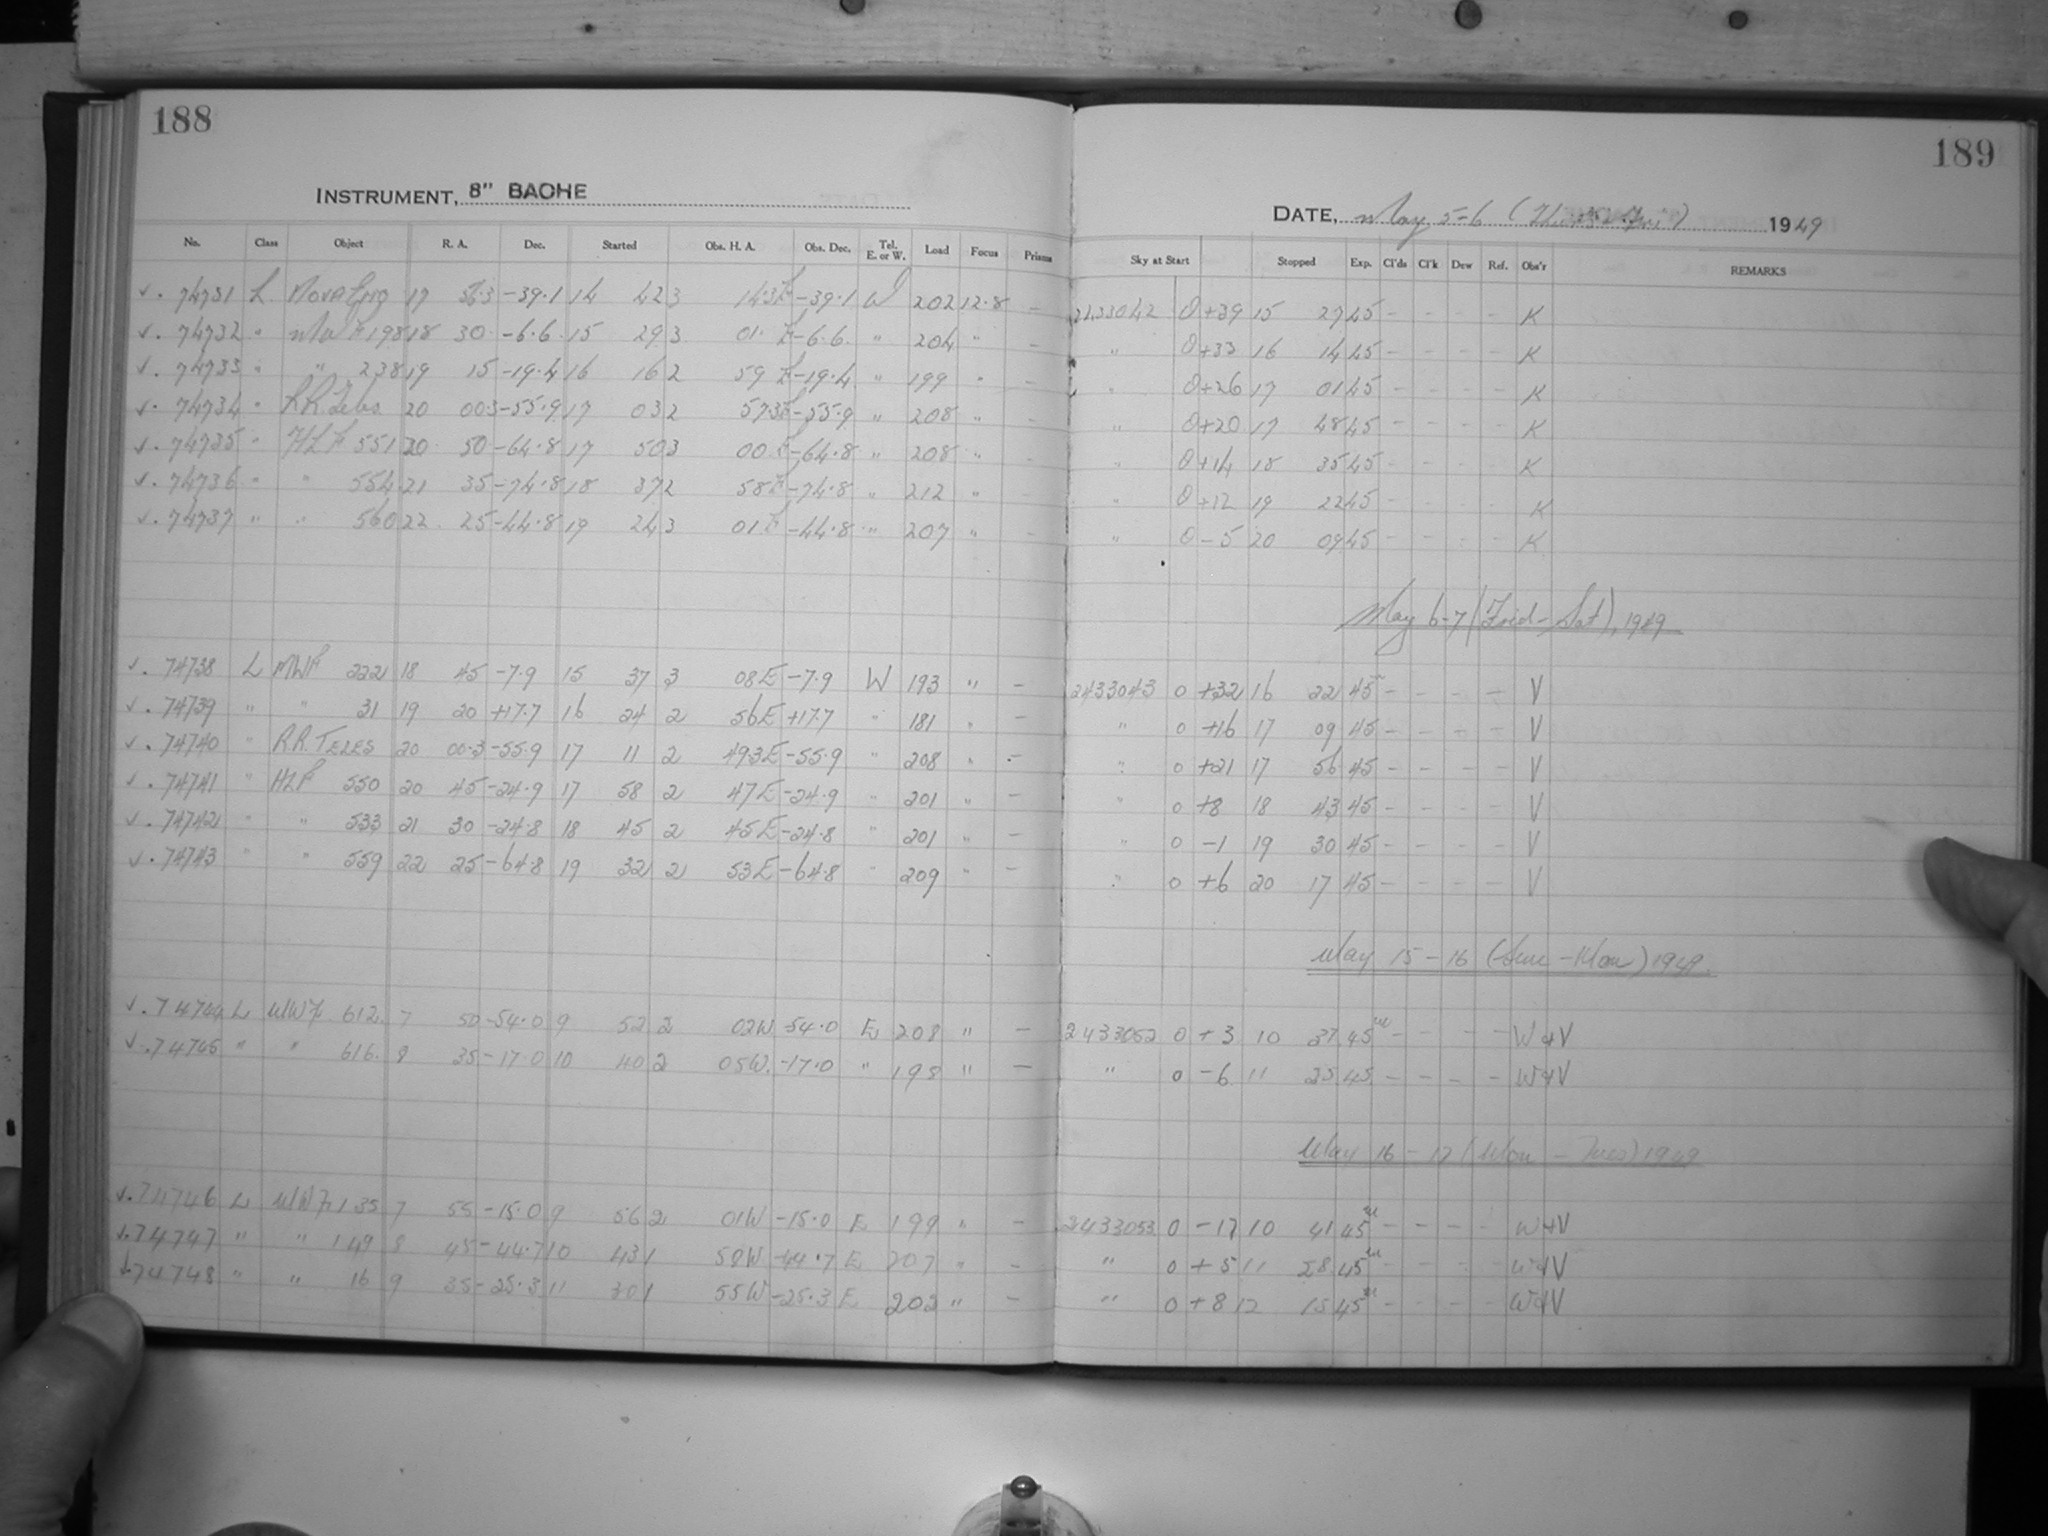 188
189
INSTRUMENT, 8" BACHE
DATE, May 5-6 (Thurs-Fri) 1949
No. Class Object R. A. Dec. Started Obs. H. A. Obs. Dec. Tel. E. or W. Load Focus Prisms Sky at Start Stopped Exp. Cl'ds Cl'k Dew Ref. Obs'r REMARKS
✓. 74731 L 17 56.3 -39.1 14 42 3 14.3E -39.1 W 202 12.8 — 2433042 0 +39 15 27 45 - - - - K
✓. 74732 " MWF 198 18 30 -6.6 15 29 3 01 E -6.6 " 204 " — " 0 +33 16 14 45 - - - - K
✓. 74733 " " 238 19 15 -19.4 16 16 2 59 E -19.4 " 199 " — " 0 +26 17 01 45 - - - - K
✓. 74734 " R.R. Teles 20 00.3 -55.9 17 03 2 57.3E -55.9 " 208 " " 0 +20 17 48 45 - - - - K
✓. 74735 " HLF 551 20 50 -64.8 17 50 3 00 E -64.8 " 208 " — " 0 +14 18 35 45 - - - - K
✓. 74736 " " 554 21 35 -74.8 18 37 2 58E -74.8 " 212 " — " 0 +12 19 22 45 - - - - K
✓. 74737 " " 560 22 25 -44.8 19 24 3 01E -44.8 " 207 " — " 0 -5 20 09 45 - - - - K
May 6-7 (Frid-Sat), 1949
✓. 74738 L MWF 222 18 45 -7.9 15 37 3 08E -7.9 W 193 " — 2433043 0 +32 16 22 45m - - - - V
✓. 74739 " " 31 19 20 +17.7 16 24 2 56E +17.7 " 181 " — " 0 +16 17 09 45 - - - - V
✓. 74740 " R.R. TELES 20 00.3 -55.9 17 11 2 49.3E -55.9 " 208 " — " 0 +21 17 56 45 - - - - V
✓. 74741 " HLF 550 20 45 -24.9 17 58 2 47E -24.9 " 201 " — " 0 +8 18 43 45 - - - - V
✓. 74742 " " 533 21 30 -24.8 18 45 2 45E -24.8 " 201 " — " 0 -1 19 30 45 - - - - V
✓. 74743 " " 559 22 25 -64.8 19 32 2 53E -64.8 " 209 " — " 0 +6 20 17 45 - - - - V
May 15-16 (Sun-Mon) 1949.
✓. 74744 L MWF 612. 7 50 -54.0 9 52 2 02W -54.0 E 208 " — 2433052 0 +3 10 37 45m - - - - W&V
✓. 74745 " " 616. 8 35 -17.0 10 40 2 05W. -17.0 " 198 " — " 0 -6 11 25 45 - - - - W&V
May 16-17 (Mon-Tues) 1949
✓. 74746 L MWF 135 7 55 -15.0 9 56 2 01W -15.0 E 199 " — 2433053 0 -17 10 41 45m - - - - W&V
✓. 74747 " " 149 8 45 -44.7 10 43 1 58W -44.7 E 207 " — " 0 +5 11 28 45m - - - - W&V
✓. 74748 " " 16 9 35 -25.3 11 30 1 55W -25.3 E 203 " — " 0 +8 12 15 45m - - - - W&V